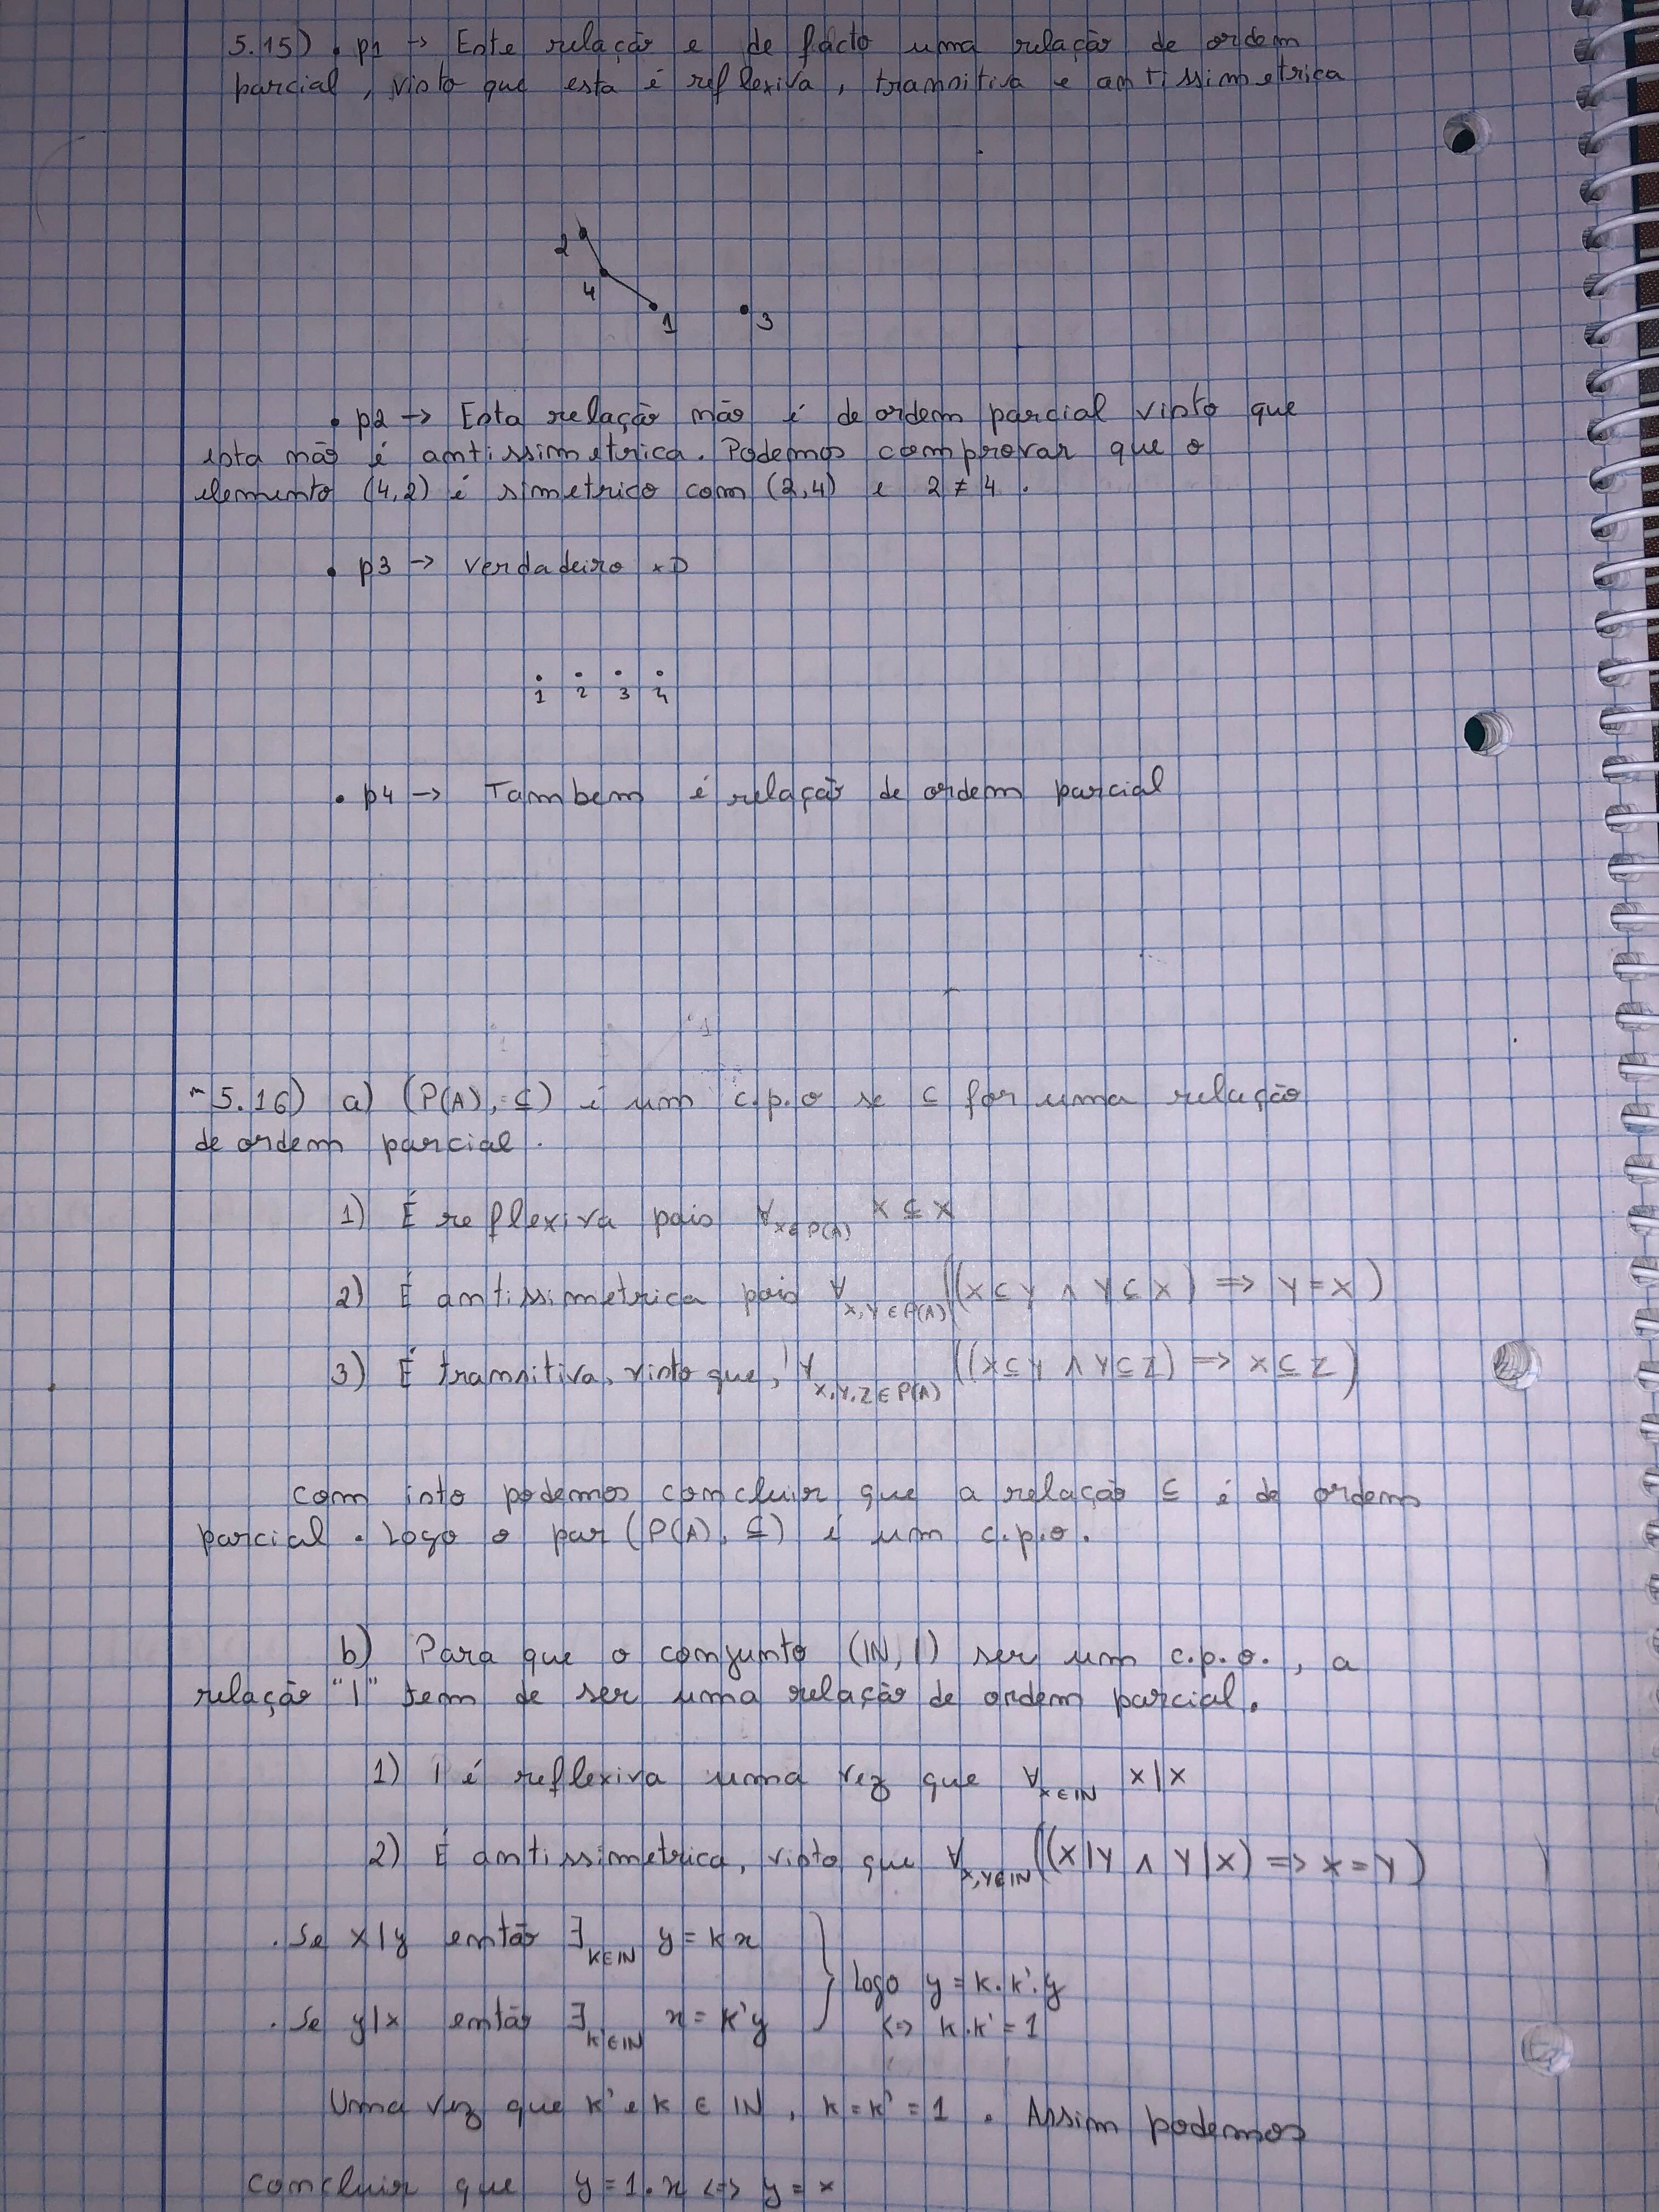 5.15) • p1 → Este relação e de facto uma relação de ordem
parcial, visto que esta é reflexiva, transitiva e antissimetrica
2
4
1
3
• p2 → Esta relação não é de ordem parcial visto que
esta não é antissimetrica. Podemos comprovar que o
elemento (4,2) é simetrico com (2,4) e 2 ≠ 4.
• p3 → Verdadeiro xD
1 2 3 4
• p4 → Tambem é relação de ordem parcial
5.16) a) (P(A), ⊆) é um c.p.o se ⊆ for uma relação
de ordem parcial.
1) É reflexiva pois ∀x∈P(A) X ⊆ X
2) É antissimetrica pois ∀x,y∈P(A) ((X⊆Y ∧ Y⊆X) => Y=X)
3) É transitiva, visto que, ∀x,y,z∈P(A) ((X⊆Y ∧ Y⊆Z) => X⊆Z)
Com isto podemos concluir que a relação ⊆ é de ordem
parcial. Logo o par (P(A), ⊆) é um c.p.o.
b) Para que o conjunto (IN, |) ser um c.p.o., a
relação "|" tem de ser uma relação de ordem parcial.
1) | é reflexiva uma vez que ∀x∈IN X|X
2) É antissimetrica, visto que ∀x,y∈IN ((X|Y ∧ Y|X) => X=Y)
• Se x|y então ∃k∈IN y = kx
Logo y = k.k'.y
• Se y|x então ∃k'∈IN x = k'y
<=> k.k' = 1
Uma vez que k' e k ∈ IN, k = k' = 1. Assim podemos
concluir que y = 1.x <=> y = x